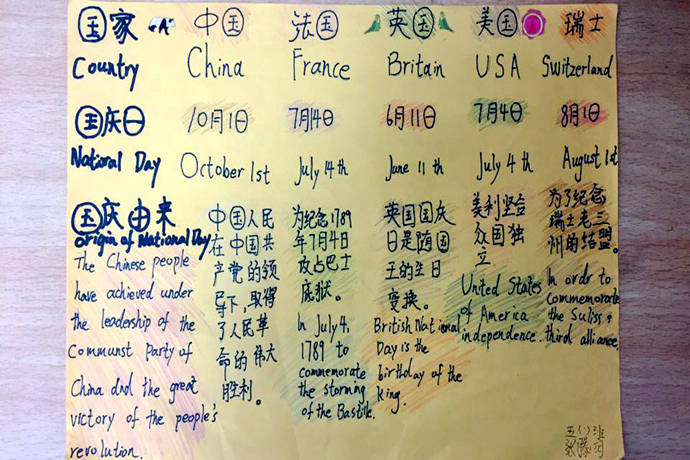 国家 中国 法国 英国 美国 瑞士
Country China France Britain USA Switzerland
国庆日 10月1日 7月14日 6月11日 7月4日 8月1日
National Day October 1st July 14th June 11th July 4th August 1st
国庆由来
origin of National Day
The Chinese people
have achieved under
the leadership of the
Communst party of
China dnd the great
victory of the people's
revolution.
中国人民
在中国共
产党的领
导下,取得
了人民革
命的伟大
胜利。
为纪念1789
年7月4日
攻占巴士
底狱。
In July 4,
1789 to
commemorate
the storming
of the Bastile.
英国国庆
日是随国
王的生日
变换。
British National
Day is the
birthday of the
king.
美利坚合
众国独
立
United States
of America
independence.
为了纪念
瑞士老三
州的结盟。
In ordr to
commemorate
the Suliss
third alliance.
五(1)班